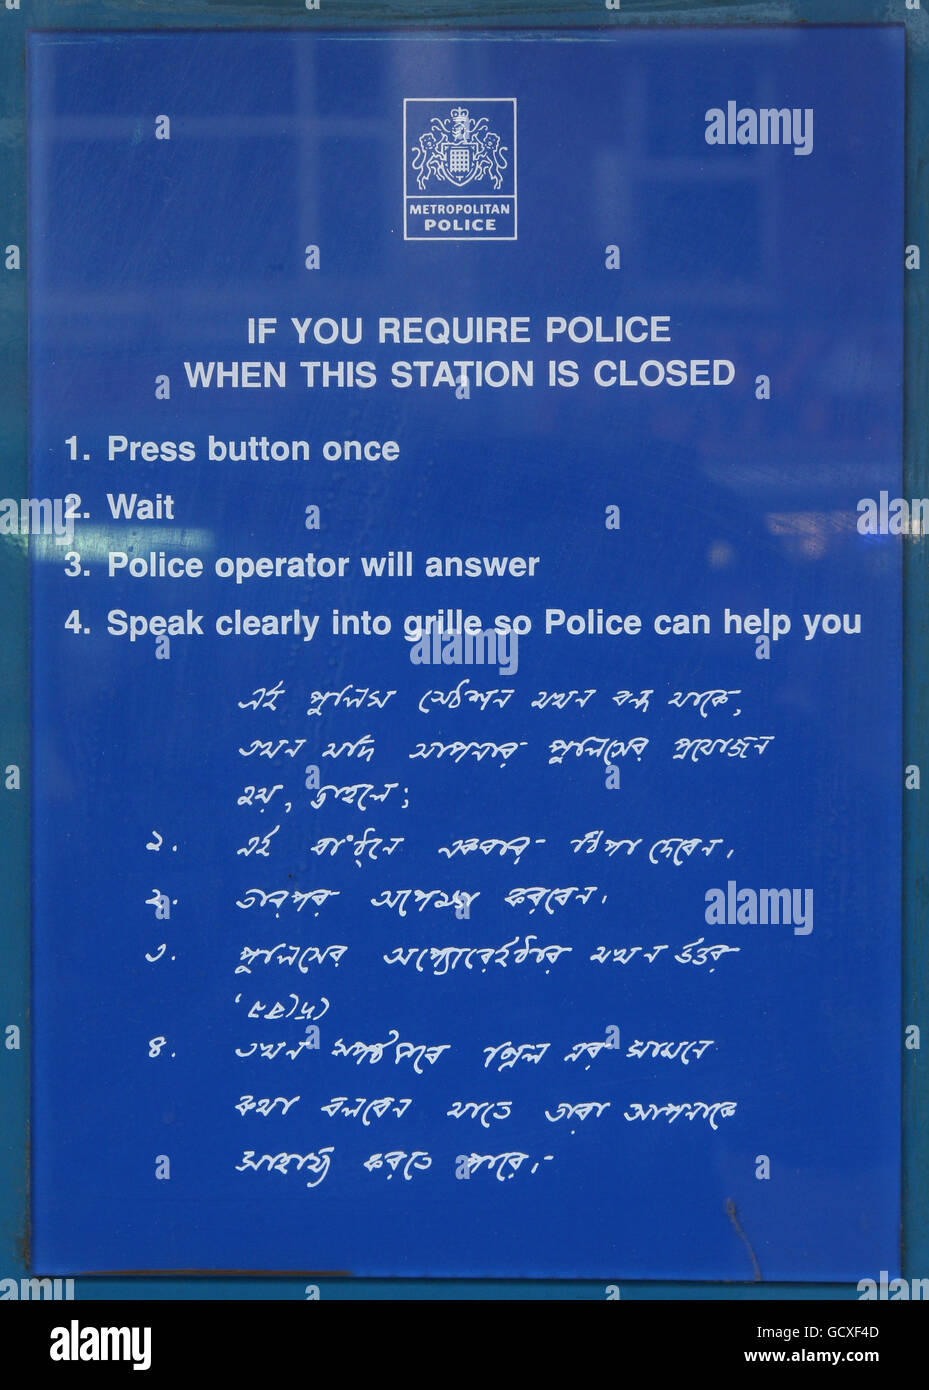 METROPOLITAN
POLICE
IF YOU REQUIRE POLICE
WHEN THIS STATION IS CLOSED
1. Press button once
2. Wait
3. Police operator will answer
4. Speak clearly into grille so Police can help you
এই পুলিস স্টেশন যখন বন্ধ থাকে,
তখন যদি আপনার পুলিসের প্রয়োজন
হয়, তাহলে;
এই একবার টিপা দেবেন।
২. তারপর অপেক্ষা করবেন।
৩. পুলিসের অপ্যারেইটার যখন উত্তর
৪. তখন গ্রিল এর সামনে
কথা বলবেন যাতে তারা আপনাকে
সাহায্য করতে পারে।-
alamy
GCXF4D
www.alamy.com